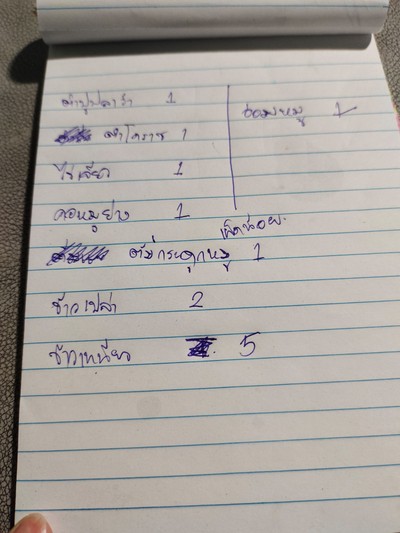 ตำปูปลาร้า 1
ตำโคราช 1
ไข่เจียว 1
คอหมูย่าง 1
เผ็ดน้อย
ต้มกระดูกหมู 1
ข้าวเปล่า 2
ข้าวเหนียว 5
ซอยหมู 1